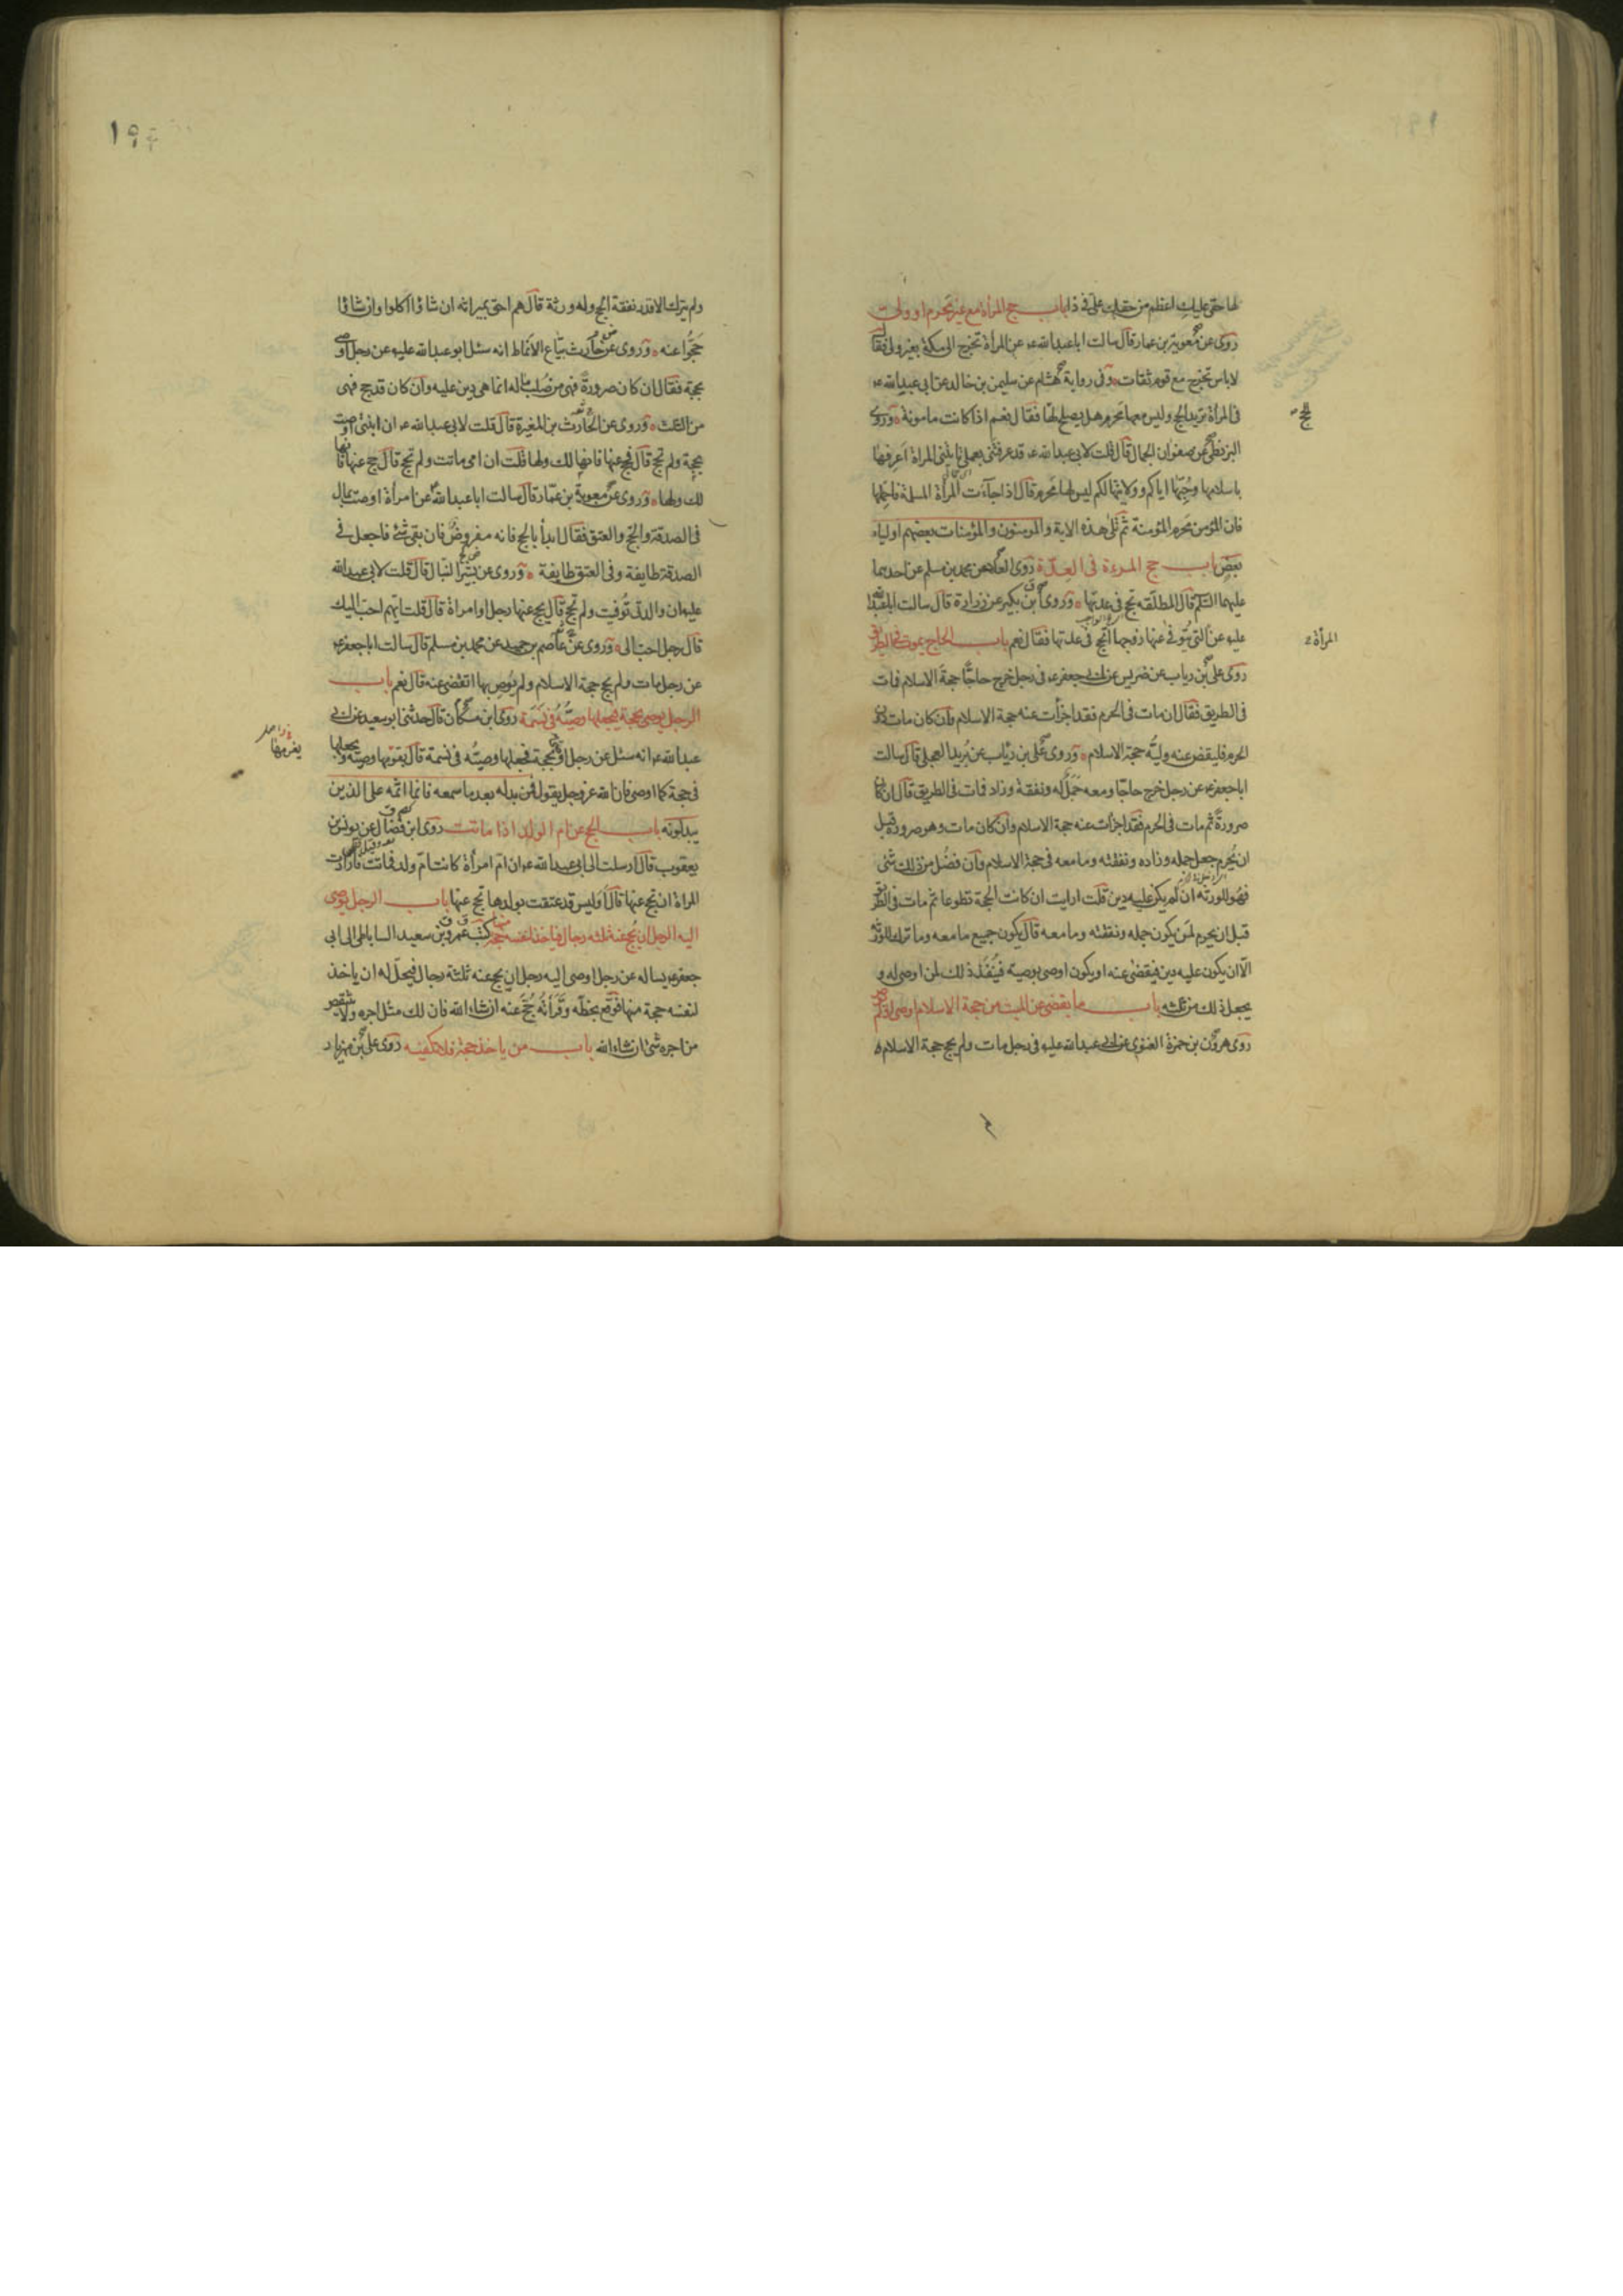 لها حقى عليك اعظم من حقك على فى ذا باب حج المرأة مع غير محرم او ولى
روى عن معوية بن عمار قال سالت ابا عبدالله ع عن المرأة تخرج الى مكة بغير ولى فقال
لا باس تخرج مع قوم ثقات وفى رواية هشام عن سليمن بن خالد عن ابى عبدالله ع
فى المرأة تريد الحج وليس معها محرم هل يصلح لها فقال نعم اذا كانت مامونة وروى
البزنطى عن صفوان الجمال قال قلت لابى عبدالله ع قد عرفتنى بعملى تاتينى المراة اعرفها
باسلامها وحبها اياكم وولايتها لكم ليس لها محرم قال اذا جاءت المرأة المسلمة فاحملها
فان المؤمن محرم المؤمنة ثم تلى هذه الاية والمومنون والمؤمنات بعضهم اولياء
بعض باب حج المرءة فى العدة روى العلا عن محمد بن مسلم عن احدهما
عليهما السلم قال المطلقه تحج فى عدتها وروى ابن بكير عن زرارة قال سالت ابا عبدالله
عليه عن التى يتوفى عنها زوجها اتحج فى عدتها فقال نعم باب الحاج يموت فى الطريق
روى على بن رياب عن ضريس عن ابى جعفر ع فى رجل خرج حاجا حجة الاسلام فمات
فى الطريق فقال ان مات فى الحرم فقد اجزأت عنه حجة الاسلام وان كان مات دون
الحرم فليقض عنه وليه حجة الاسلام وروى على بن رئاب عن بريد العجلى قال سالت
ابا جعفر ع عن رجل خرج حاجا ومعه جمل له ونفقة وزاد فمات فى الطريق قال ان كان
صرورة ثم مات فى الحرم فقد اجزأت عنه حجة الاسلام وان كان مات وهو صروره قبل
ان يحرم جعل جمله وزاده ونفقته وما معه فى حجة الاسلام وان فضل من ذلك شئ
فهو للورثه ان لم يكن عليه دين قلت ارايت ان كانت الحجة تطوعا ثم مات فى الطريق
قبل ان يحرم لمن يكون جمله ونفقته وما معه قال يكون جميع ما معه وما ترك للورثه
الا ان يكون عليه دين فيقضى عنه او يكون اوصى بوصية فينفذ ذلك لمن اوصى له و
يجعل ذلك من ثلثه باب ما يقضى عن الميت من حجة الاسلام اوصى او لم
روى هرون بن حمزة الغنوى عن ابى عبدالله عليه فى رجل مات ولم يحج حجة الاسلام
الحج
المرأة
١٩٤
ولم يترك الا قدر نفقة الحج وله ورثة قال هم احق بميراثه ان شاؤا اكلوا وان شاؤا
حجوا عنه وروى عن حارث بياع الانماط انه سئل ابو عبدالله عليه عن رجل اوصى
بحجة فقال ان كان صرورة فهى من صلب ماله انما هى دين عليه وان كان قد حج فهى
من الثلث وروى عن الحارث بن المغيرة قال قلت لابى عبدالله ع ان ابنتى اوصت
بحجة ولم تحج قال فحج عنها فانها لك ولها قلت ان امى ماتت ولم تحج قال حج عنها فانها
لك ولها وروى عن معوية بن عمار قال سالت ابا عبدالله عن امرأة اوصت بمال
فى الصدقة والحج والعتق فقال ابدأ بالحج فانه مفروض فان بقى شئ فاجعل فى
الصدقة طايفة وفى العتق طايفة وروى عن بشير النبال قال قلت لابى عبدالله
عليه ان والدتى توفيت ولم تحج قال يحج عنها رجل او امراة قال قلت ايهم احب اليك
قال رجل احب الى وروى عن عاصم بن حميد عن محمد بن مسلم قال سالت ابا جعفر ع
عن رجل مات ولم يحج حجة الاسلام ولم يوص بها اتقضى عنه قال نعم باب
الرجل يوصى بحجة فيجعلها وصيه فى نسمة روى ابن مسكان قال حدثنى ابو سعيد عن ابى
عبدالله ع انه سئل عن رجل اوصى بحجة فجعلها وصيه فى نسمة قال يغرمها وصيه ويجعلها
فى حجة كما اوصى فان الله عز وجل يقول فمن بدله بعد ما سمعه فانما اثمه على الذين
يبدلونه باب الحج عن ام الولد اذا ماتت روى ابن فضال عن يونس بن
يعقوب قال ارسلت الى ابى عبدالله ع ان ام امرأة كانت ام ولد فماتت فارادت
المراة ان تحج عنها قال اوليس قد عتقت بولدها تحج عنها باب الرجل يوصى
اليه الرجل ان يحج عنه ثلثه رجال فياخذ لنفسه حجة منها كتب عمرو بن سعيد الساباطى الى ابى
جعفر ع يساله عن رجل اوصى اليه رجل ان يحج عنه ثلثة رجال فيحل له ان ياخذ
لنفسه حجة منها فوقع بخطه وقرأته حج عنه ان شاء الله فان لك مثل اجره ولا ينقص
من اجره شئ ان شاء الله باب من ياخذ حجة فلا تكفيه روى على بن مهزيار
يغرمها